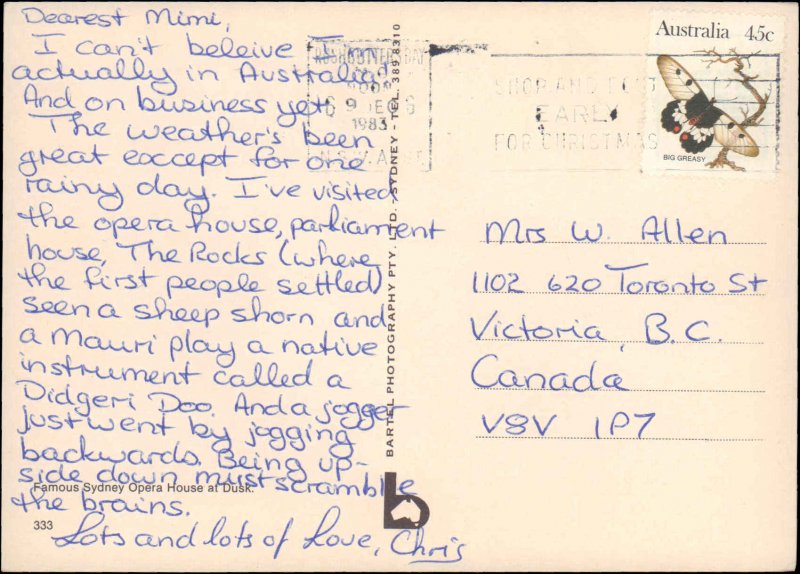 Dearest Mimi,
I can't beleive I'm
actually in Australia!
And on business yet!
The weather's been
great except for one
rainy day. I've visited
the opera house, parliament
house, The Rocks (where
the first people settled)
seen a sheep shorn and
a Mauri play a native
instrument called a
Didgeri Doo. And a jogger
just went by jogging
backwards. Being up-
side down must scramble
the brains.
Lots and lots of Love, Chris
Famous Sydney Opera House at Dusk.
333
BARTEL PHOTOGRAPHY PTY. LTD. SYDNEY - TEL. 389 8310
b
1983
SHOP AND POST
EARLY
FOR CHRISTMAS
Australia 45c
BIG GREASY
Mrs W. Allen
1102 620 Toronto St
Victoria, B.C.
Canada
V8V 1P7